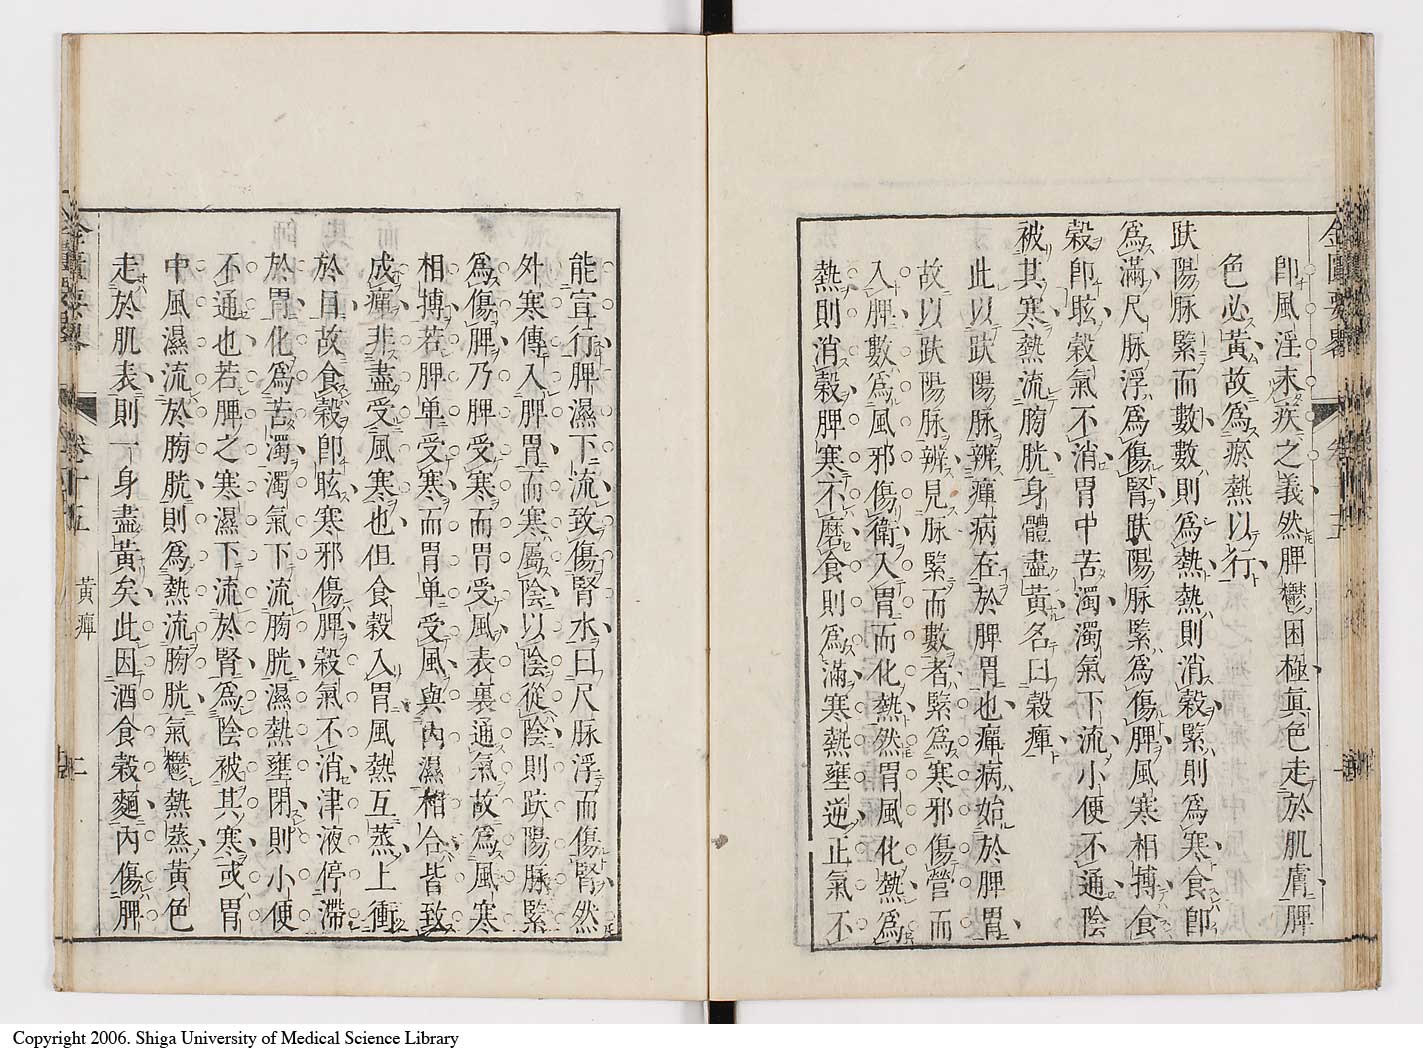 金匱要畧
卽風淫末疾之義然脾鬱困極眞色走於肌膚脾
色必黃故爲瘀熱以行
趺陽脉緊而數數則爲熱熱則消穀緊則爲寒食卽
爲滿尺脉浮爲傷腎趺陽脉緊爲傷脾風寒相搏食
穀卽眩穀氣不消胃中苦濁濁氣下流小便不通陰
被其寒熱流膀胱身體盡黃名曰穀癉
此以趺陽脉辨癉病在於脾胃也癉病始於脾胃
故以趺陽脉辨見脉緊而數者緊爲寒邪傷營而
入脾數爲風邪傷衛入胃而化熱然胃風化熱爲
熱則消穀脾寒不磨食則爲滿寒熱壅逆正氣不
能宣行脾濕下流致傷腎水曰尺脉浮而傷腎然
外寒傳入脾胃而寒屬陰以陰從陰則趺陽脉緊
爲傷脾乃脾受寒而胃受風表裏通氣故爲風寒
相搏若脾单受寒而胃单受風與內濕相合皆致
成癉非盡受風寒也但食穀入胃風熱互蒸上衝
於目故食穀卽眩寒邪傷脾穀氣不消津液停滯
於胃化爲苦濁濁氣下流膀胱濕熱壅閉則小便
不通也若脾之寒濕下流於腎爲陰被其寒或胃
中風濕流於膀胱則爲熱流膀胱氣鬱熱蒸黃色
走於肌表則一身盡黃矣此因酒食穀麵內傷脾
卷十五
黃癉
二
Copyright 2006. Shiga University of Medical Science Library